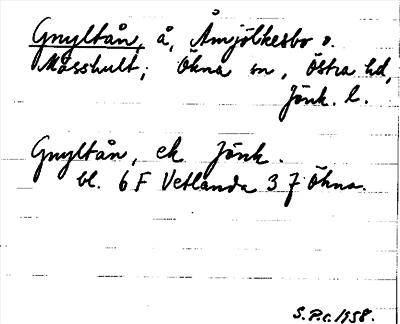 Gnyltån, å, Åmjölkesbo o.
Måsshult, Ökna sn, Östra hd,
Jönk. l.
Gnyltån, ek Jönk.
bl. 6 F Vetlanda 3 J Ökna.
S.P.c. 1958.